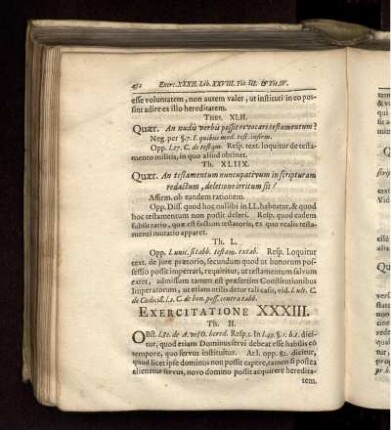 472 Exerc. XXXII. Lib. XXVIII. Tit. III. & Tit. IV.
esse voluntatem, non autem valet, ut instituti in eo pos-
sint adire ex illo hereditatem.
Thes. XLII.
Quæt. An nudis verbis possit revocari testamentum?
Neg. per §. 7. I. quibus mod. test. infirm.
Opp. l. 17. C. de testam. Resp. text. loquitur de testa-
mento militis, in quo aliud obtinet.
Th. XLIIX.
Quæt. An testamentum nuncupativum in scripturam
redactum, deletione irritum fit?
Affirm. ob eandem rationem.
Opp. Diff. quod hoc nullibi in LL. habeatur, & quod
hoc testamentum non possit deleri. Resp. quod eadem
subsit ratio, quæ est factum testatoris, ex quo
menti mutatio apparet.
Th. L.
Opp. l. unic. si tabb. testam. extab. Resp. Loquitur
text. de jure prætorio, secundum quod ut bonorum pos-
sessio possit impetrari, requiritur, ut testamentum salvum
extet, admissum tamen est præsertim Constitutionibus
Imperatorum, ut etiam initis detur tali casu, vid. l. ult. C.
de Codicill. l. 2. C. de bon. poss. contra tabb.
EXERCITATIONE XXXIII.
Th. II.
OBst. l. 82. de A. vel O. hered. Resp. 1. In l. 49. §. 1. h. t. dici-
tur, quod etiam Domini servi debeat esse habilis eo
tempore, quo servus instituitur. At l. opp. 82. dicitur,
quod licet ipse dominus non possit capere, tamen si postea
alienetur servus, novo domino possit acquirere heredita-
tem.